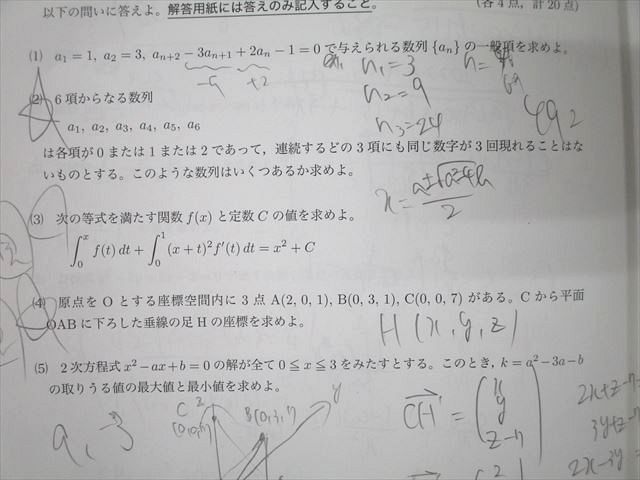 以下の問いに答えよ。解答用紙には答えのみ記入すること。 (各4点, 計20点)
(1) a₁ = 1, a₂ = 3, aₙ₊₂ − 3aₙ₊₁ + 2aₙ − 1 = 0 で与えられる数列 {aₙ} の一般項を求めよ。
n₁=3
n₂=9
n₃=24
(2) 6項からなる数列
a₁, a₂, a₃, a₄, a₅, a₆
は各項が0または1または2であって，連続するどの3項にも同じ数字が3回現れることはな
いものとする。このような数列はいくつあるか求めよ。
(3) 次の等式を満たす関数 f(x) と定数 C の値を求めよ。
∫₀ˣ f(t) dt + ∫₀¹ (x + t)² f′(t) dt = x² + C
(4) 原点をOとする座標空間内に3点 A(2, 0, 1), B(0, 3, 1), C(0, 0, 7) がある。Cから平面
OABに下ろした垂線の足Hの座標を求めよ。
H(x, y, z)
(5) 2次方程式 x² − ax + b = 0 の解が全て 0 ≦ x ≦ 3 をみたすとする。このとき, k = a² − 3a − b
の取りうる値の最大値と最小値を求めよ。